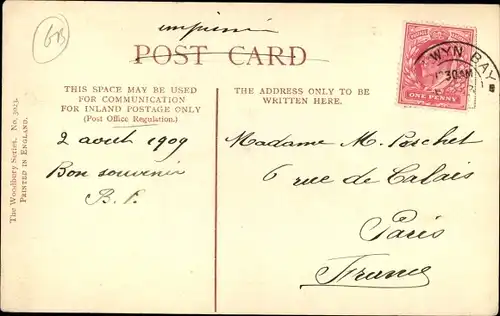 6B
imprimé
POST CARD
THIS SPACE MAY BE USED
FOR COMMUNICATION
FOR INLAND POSTAGE ONLY
(Post Office Regulation.)
THE ADDRESS ONLY TO BE
WRITTEN HERE.
2 août 1909
Bon souvenir
B. P.
Madame M. Poschet
6 rue de Calais
Paris
France
The Woodbury Series. No. 3023.
PRINTED IN ENGLAND.
POSTAGE REVENUE
ONE PENNY
WYN BAY
30AM